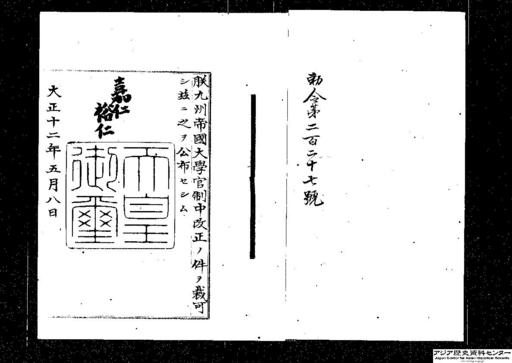 勅令第二百二十七號
朕九州帝國大學官制中改正ノ件ヲ裁可
シ茲ニ之ヲ公布セシム
嘉仁
裕仁
天皇
御璽
大正十二年五月八日
アジア歴史資料センター
Japan Center for Asian Historical Records